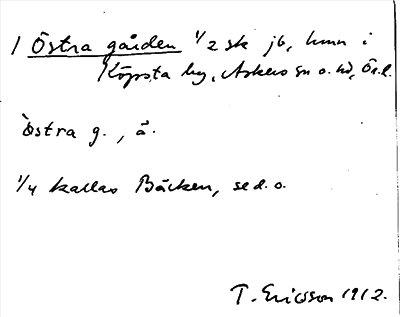 1 Östra gården 1/2 sk jb, hmn i
Köpsta by, Askers sn o. hd, Ör.l.
Östra g., å.
1/4 kallas Bäcken, se d. o.
T. Ericsson 1912.